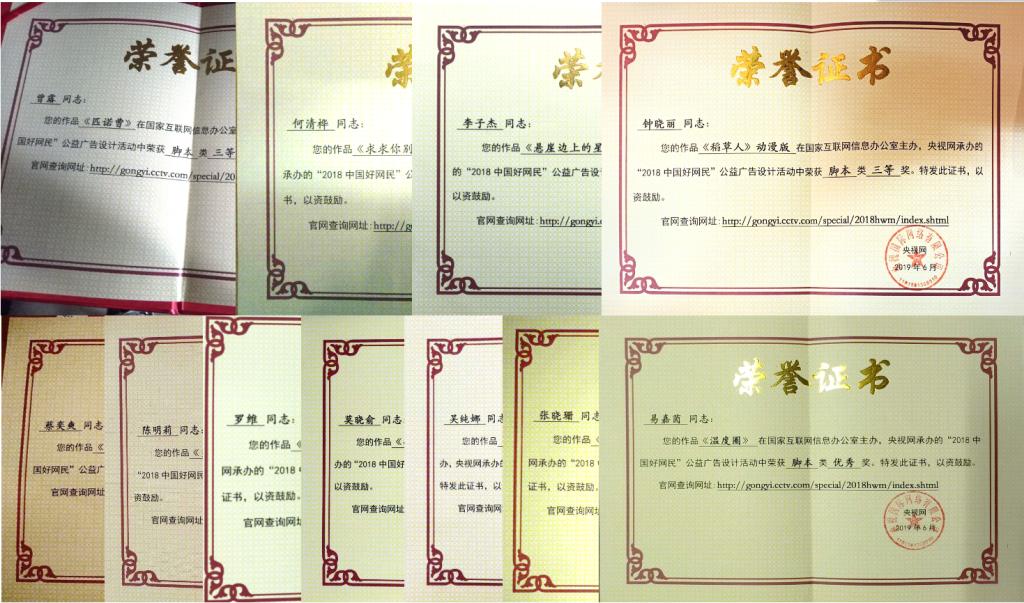 荣誉证
曾露 同志：
您的作品《匹诺曹》在国家互联网信息办公室
国好网民”公益广告设计活动中荣获 脚本 类 三等
官网查询网址：http://gongyi.cctv.com/special/20
荣
何清桦 同志：
您的作品《求求你别
承办的“2018 中国好网民”公
书，以资鼓励。
官网查询网址：http://g
荣
李子杰 同志：
您的作品《悬崖边上的星
的“2018 中国好网民”公益广告设
以资鼓励。
官网查询网址：http://gongyi.c
荣誉证书
钟晓丽 同志：
您的作品《稻草人》动漫版 在国家互联网信息办公室主办，央视网承办的
“2018 中国好网民”公益广告设计活动中荣获 脚本 类 三等 奖。特发此证书，以
资鼓励。
官网查询网址：http://gongyi.cctv.com/special/2018hwm/index.shtml
央视网
2019 年 6 月
蔡奕爽 同志
您的作品《
国好网民”公益广
官网查询网址
陈明莉 同志
您的作品《
“2018 中国好网民
资鼓励。
官网查询网址
罗维 同志：
您的作品《
网承办的“2018 中
证书，以资鼓励。
官网查询网址
莫晓俞 同志
您的作品《
办的“2018 中国
以资鼓励。
官网查询网址
吴纯娜 同志
您的作品《
办，央视网承办
特发此证书，以
官网查询网址
张晓珊 同志
您的作品《
网承办的“2018
证书，以资鼓励。
官网查询网址
荣誉证书
易嘉茵 同志：
您的作品《温度圈》 在国家互联网信息办公室主办，央视网承办的“2018 中
国好网民”公益广告设计活动中荣获 脚本 类 优秀 奖。特发此证书，以资鼓励。
官网查询网址：http://gongyi.cctv.com/special/2018hwm/index.shtml
央视网
2019 年 6 月